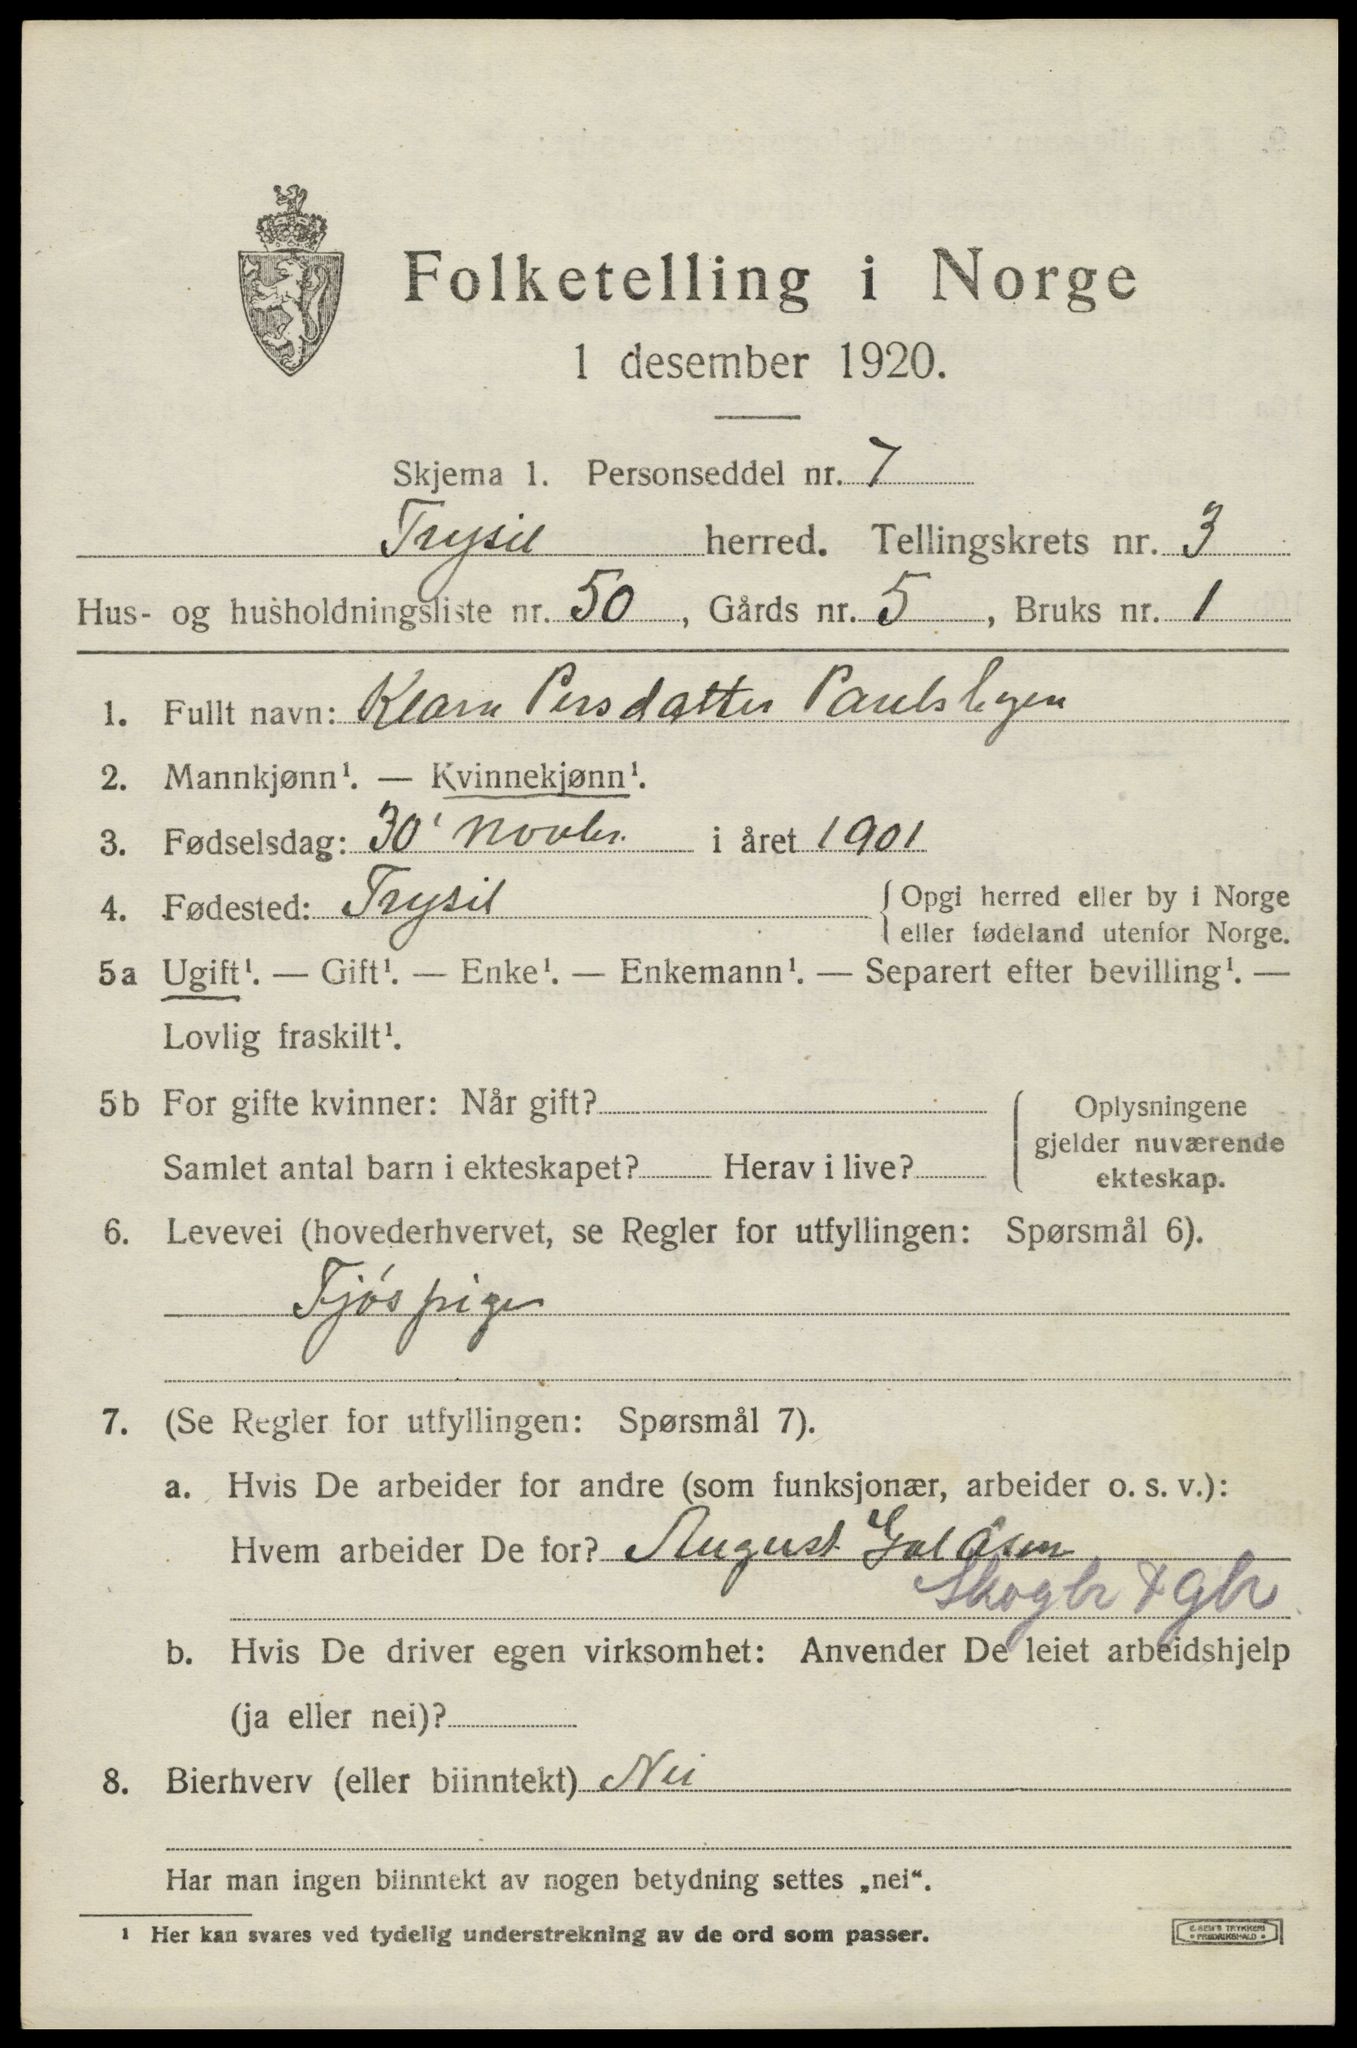 Folketelling i Norge
1 desember 1920.
Skjema 1. Personseddel nr. 7
Trysil herred. Tellingskrets nr. 3
Hus- og husholdningsliste nr. 50, Gårds nr. 5, Bruks nr. 1
1. Fullt navn: Klara Persdatter
2. Mannkjønn¹. — Kvinnekjønn¹.
3. Fødselsdag: 30' Novbr. i året 1901
4. Fødested: Trysil { Opgi herred eller by i Norge
eller fødeland utenfor Norge.
5a Ugift¹. — Gift¹. — Enke¹. — Enkemann¹. — Separert efter bevilling¹. —
Lovlig fraskilt¹.
5b For gifte kvinner: Når gift?
Samlet antal barn i ekteskapet? Herav i live?
Oplysningene
gjelder nuværende
ekteskap.
6. Levevei (hovederhvervet, se Regler for utfyllingen: Spørsmål 6).
Fjøspige
7. (Se Regler for utfyllingen: Spørsmål 7).
a. Hvis De arbeider for andre (som funksjonær, arbeider o. s. v.):
Hvem arbeider De for? August Galåsen
Skogbr & gbr
b. Hvis De driver egen virksomhet: Anvender De leiet arbeidshjelp
(ja eller nei)?
8. Bierhverv (eller biinntekt) Nei
Har man ingen biinntekt av nogen betydning settes „nei“.
¹ Her kan svares ved tydelig understrekning av de ord som passer.
E. SEM'S TRYKKERI
• FREDRIKSHALD •